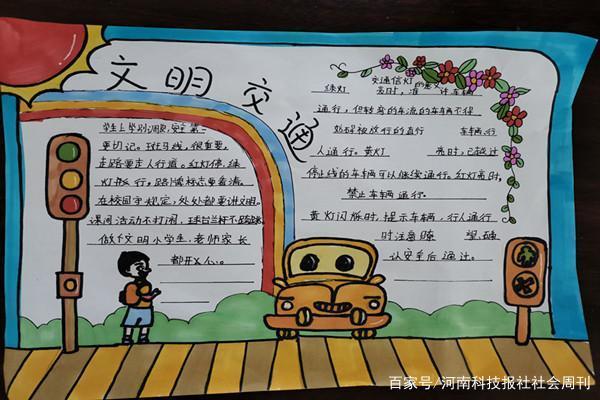 文明交通
学生上学别调皮,安全第一
要切记。斑马线,很重要,
走路要走人行道。红灯停,绿
灯行,路牌标志要看清。
在校园守规定,处处都要讲文明。
课间活动不打闹,
做个文明小学生,老师家长
都开心。
交通信灯的意义
绿灯 亮时,准许车辆
通行,但转弯的车流的车辆不得
妨碍被放行的直行 车辆、行
人通行。黄灯 亮时,已越过
停止线的车辆可以继续通行。红灯亮时,
禁止车辆通行。
黄灯闪烁时,提示车辆、行人通行
时注意瞭 望,确
认安全后通过。
百家号/河南科技报社社会周刊